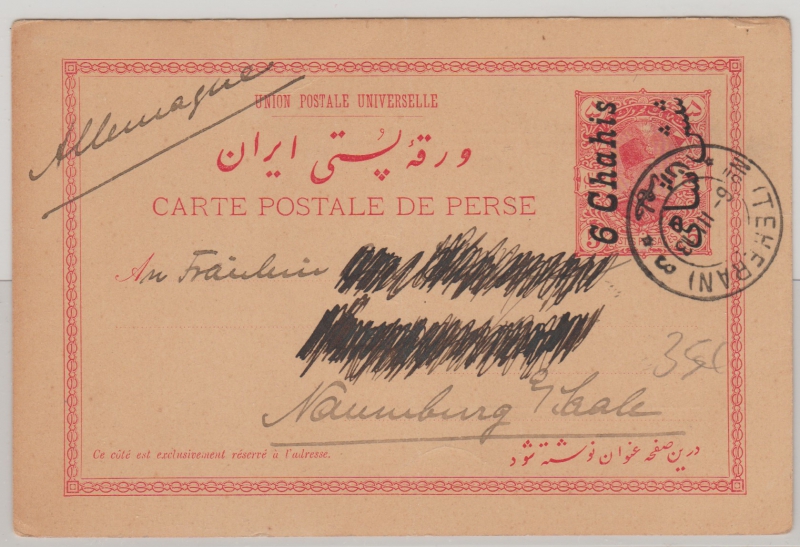 Allemagne
UNION POSTALE UNIVERSELLE
ورقهٔ پستی ایران
CARTE POSTALE DE PERSE
6 Chahis
شش شاهی
TEHERAN
An Fräulein
Naumburg a/Saale
Ce côté est exclusivement réservé à l'adresse.
درین صفحه عنوان نوشته شود